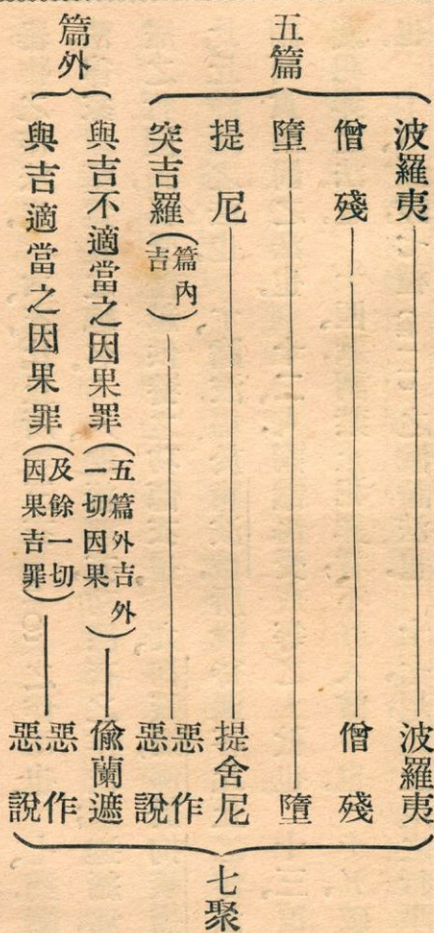 五篇
波羅夷 波羅夷
僧殘 僧殘
墮 墮
提尼 提舍尼
突吉羅（篇內吉） 惡作 惡說
篇外
與吉不適當之因果罪（五篇外吉外一切因果） 偷蘭遮
與吉適當之因果罪（及餘一切因果吉罪） 惡作 惡說
七聚